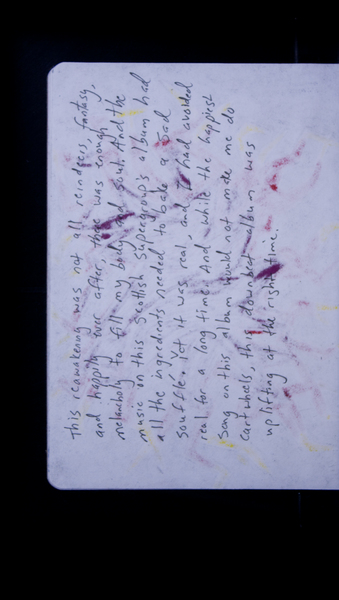 This reawakening was not all reindeers, fantasy,
and happily ever after, there was enough
melancholy to fill my body and soul. And the
music on this Scottish Supergroup's album had
all the ingredients needed to bake a sad
souffle. Yet it was real, and I had avoided
real for a long time. And while the happiest
song on this album would not make me do
cartwheels, this downbeat album was
uplifting at the right time.